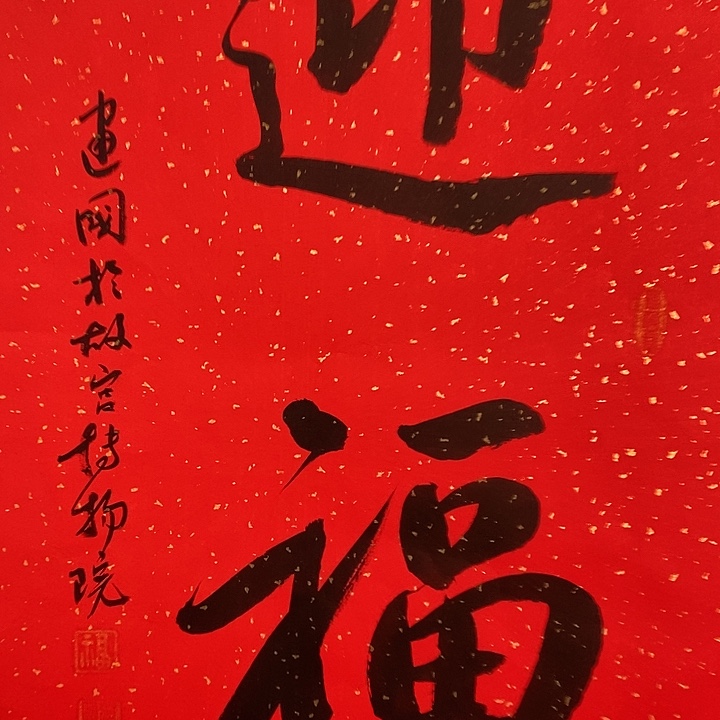 迎福
建國於故宫博物院